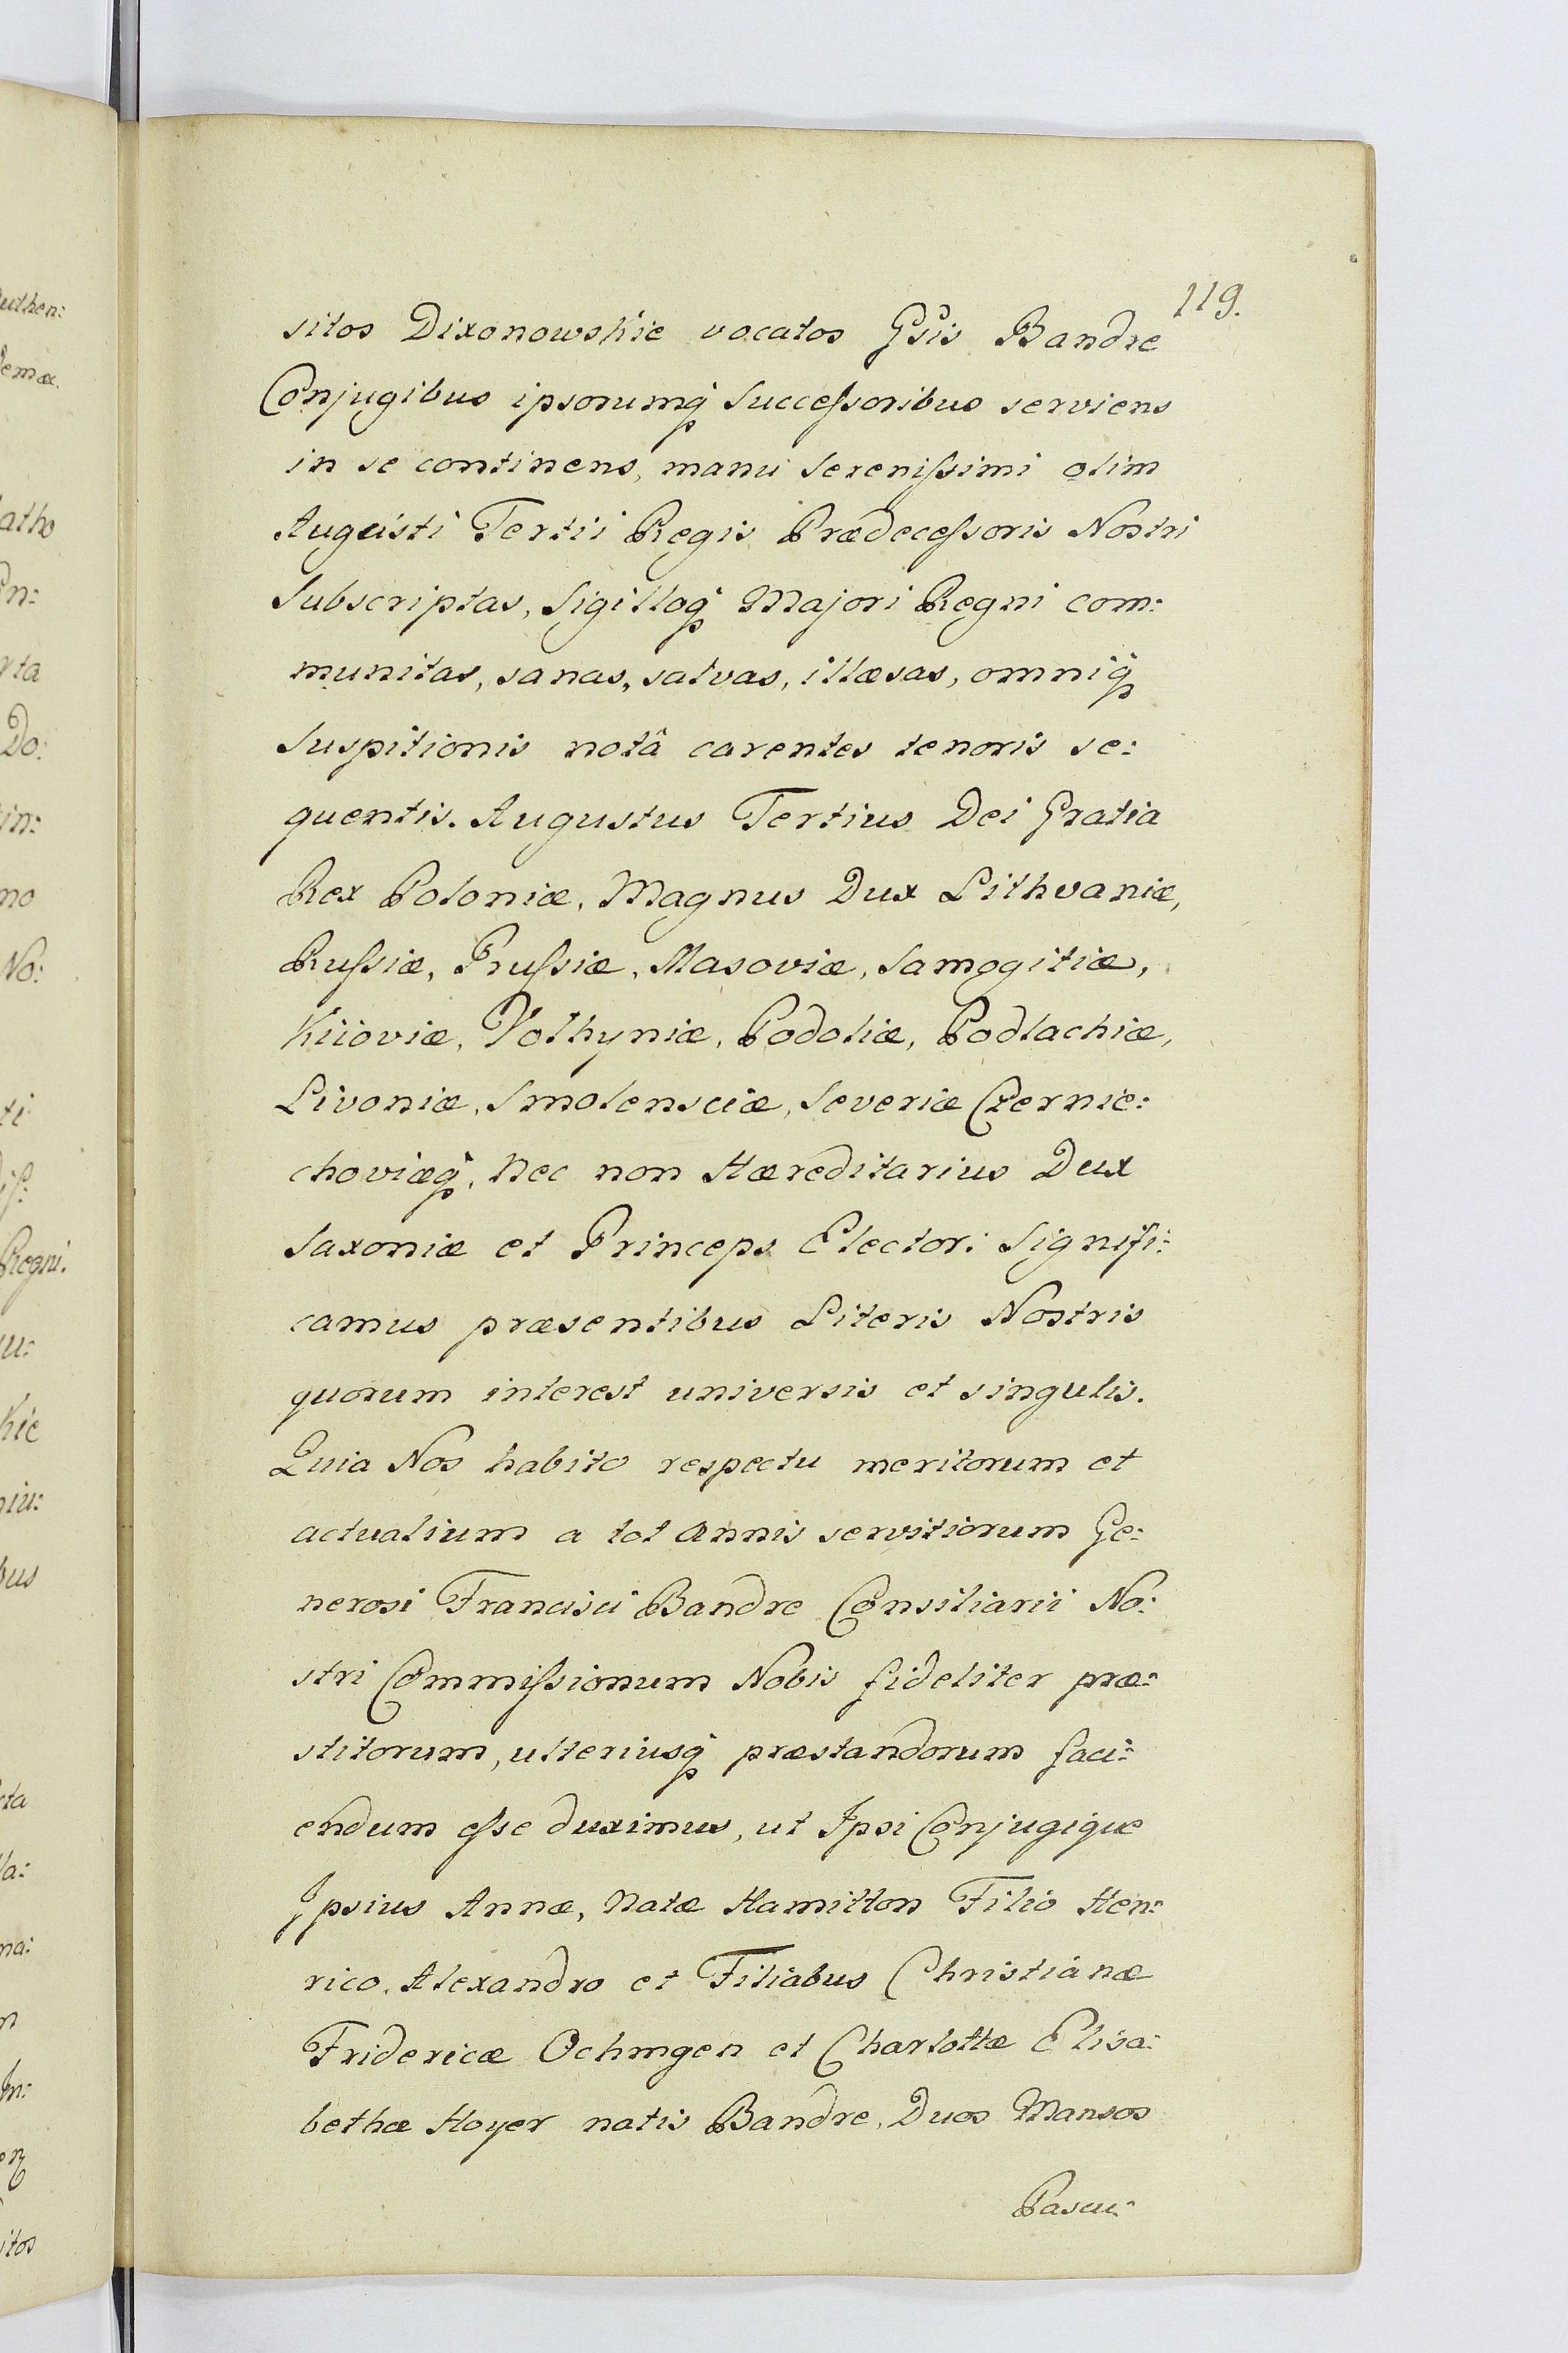 119.
sitos Dixonowskie vocatos Gsis Bandre
Conjugibus ipsorumq̃ Succeſsoribus serviens
in se continens, manu Sereniſsimi olim
Augusti Tertii Regis Prædeceſsoris Nostri
Subscriptas, Sigilloq̃ Majori Regni com:
munitas, sanas, salvas, illæsas, omniq̃
Suspitionis notâ carentes tenoris se:
quentis. Augustus Tertius Dei Gratia
Rex Poloniæ, Magnus Dux Lithvaniæ,
Ruſsiæ, Pruſsiæ, Masoviæ, Samogitiæ,
Kiioviæ, Volhyniæ, Podoliæ, Podlachiæ,
Livoniæ, Smolensciæ, Severiæ Czernie:
choviæq̃, Nec non Hæreditarius Dux
Saxoniæ et Princeps Elector: Signifi:
camus præsentibus Literis Nostris
quorum interest universis et singulis.
Quia Nos habito respectu meritorum et
actualium a tot annis servitiorum Ge:
nerosi Francisci Bandre Consiliarii No:
stri Commiſsionum Nobis fideliter præ:
stitorum, ulteriusq̃ præstandorum faci:
endum eſse duximus, ut Ipsi Conjugique
Ipsius Annæ, Natæ Hamilton Filio Hen:
rico, Alexandro et Filiabus Christianæ
Fridericæ Ochmgen et Charlottæ Elisa:
bethæ Hoyer natis Bandre, Duos Mansos
Pascu:
uthen:
emæ.
atho
n:
ta
Do:
in:
no
No:
ti
iſ:
Regni.
u:
kie
niu:
bus
ta
la:
na:
n
m:
itos